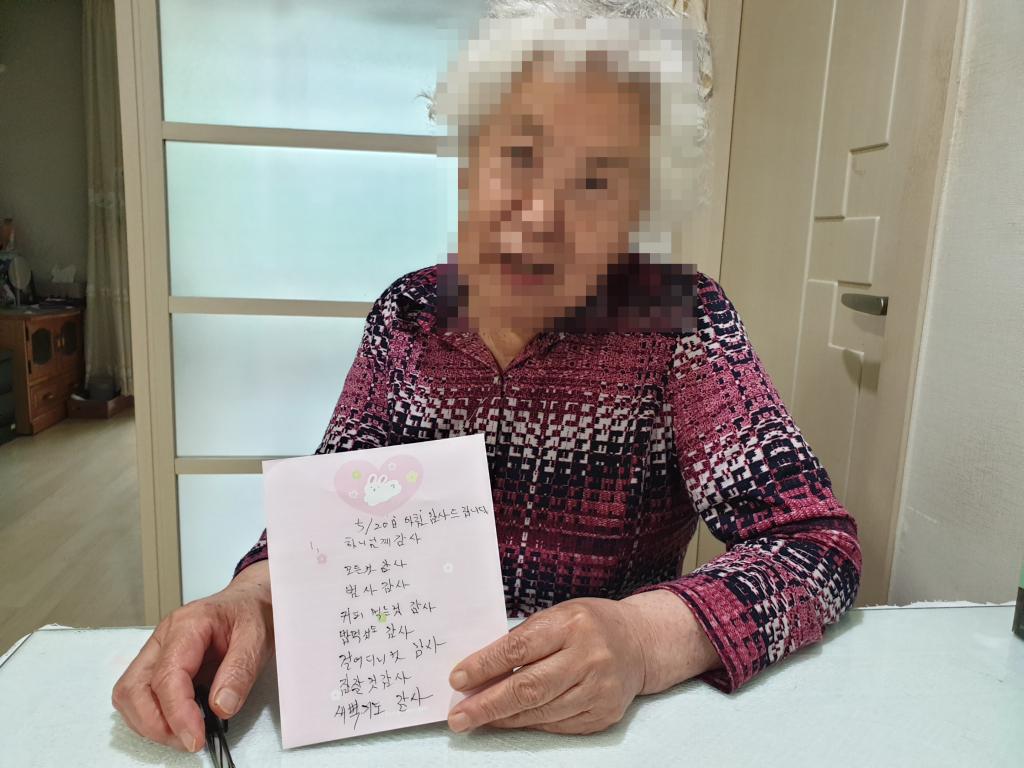 5/20일 아침 감사드립니다
1, 하나님께 감사
모든것 감사
범사 감사
커피 먹는것 감사
밥먹는 감사
걸어다니것 감사
잠잘것 감사
새벽기도 감사